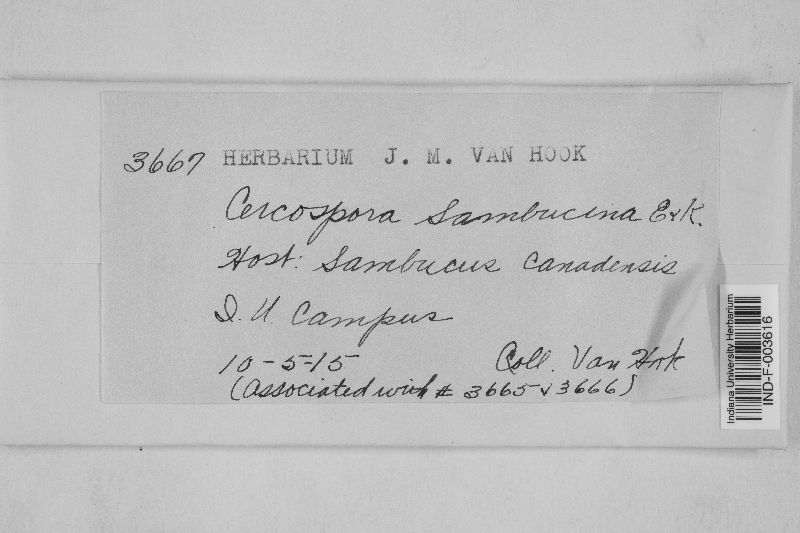 3667 HERBARIUM J. M. VAN HOOK
Cercospora Sambucina E&K.
Host: Sambucus canadensis
I. U. Campus
10-5-15 Coll. Van Hook
(Associated with # 3665 & 3666)
Indiana University Herbarium
IND-F-003616